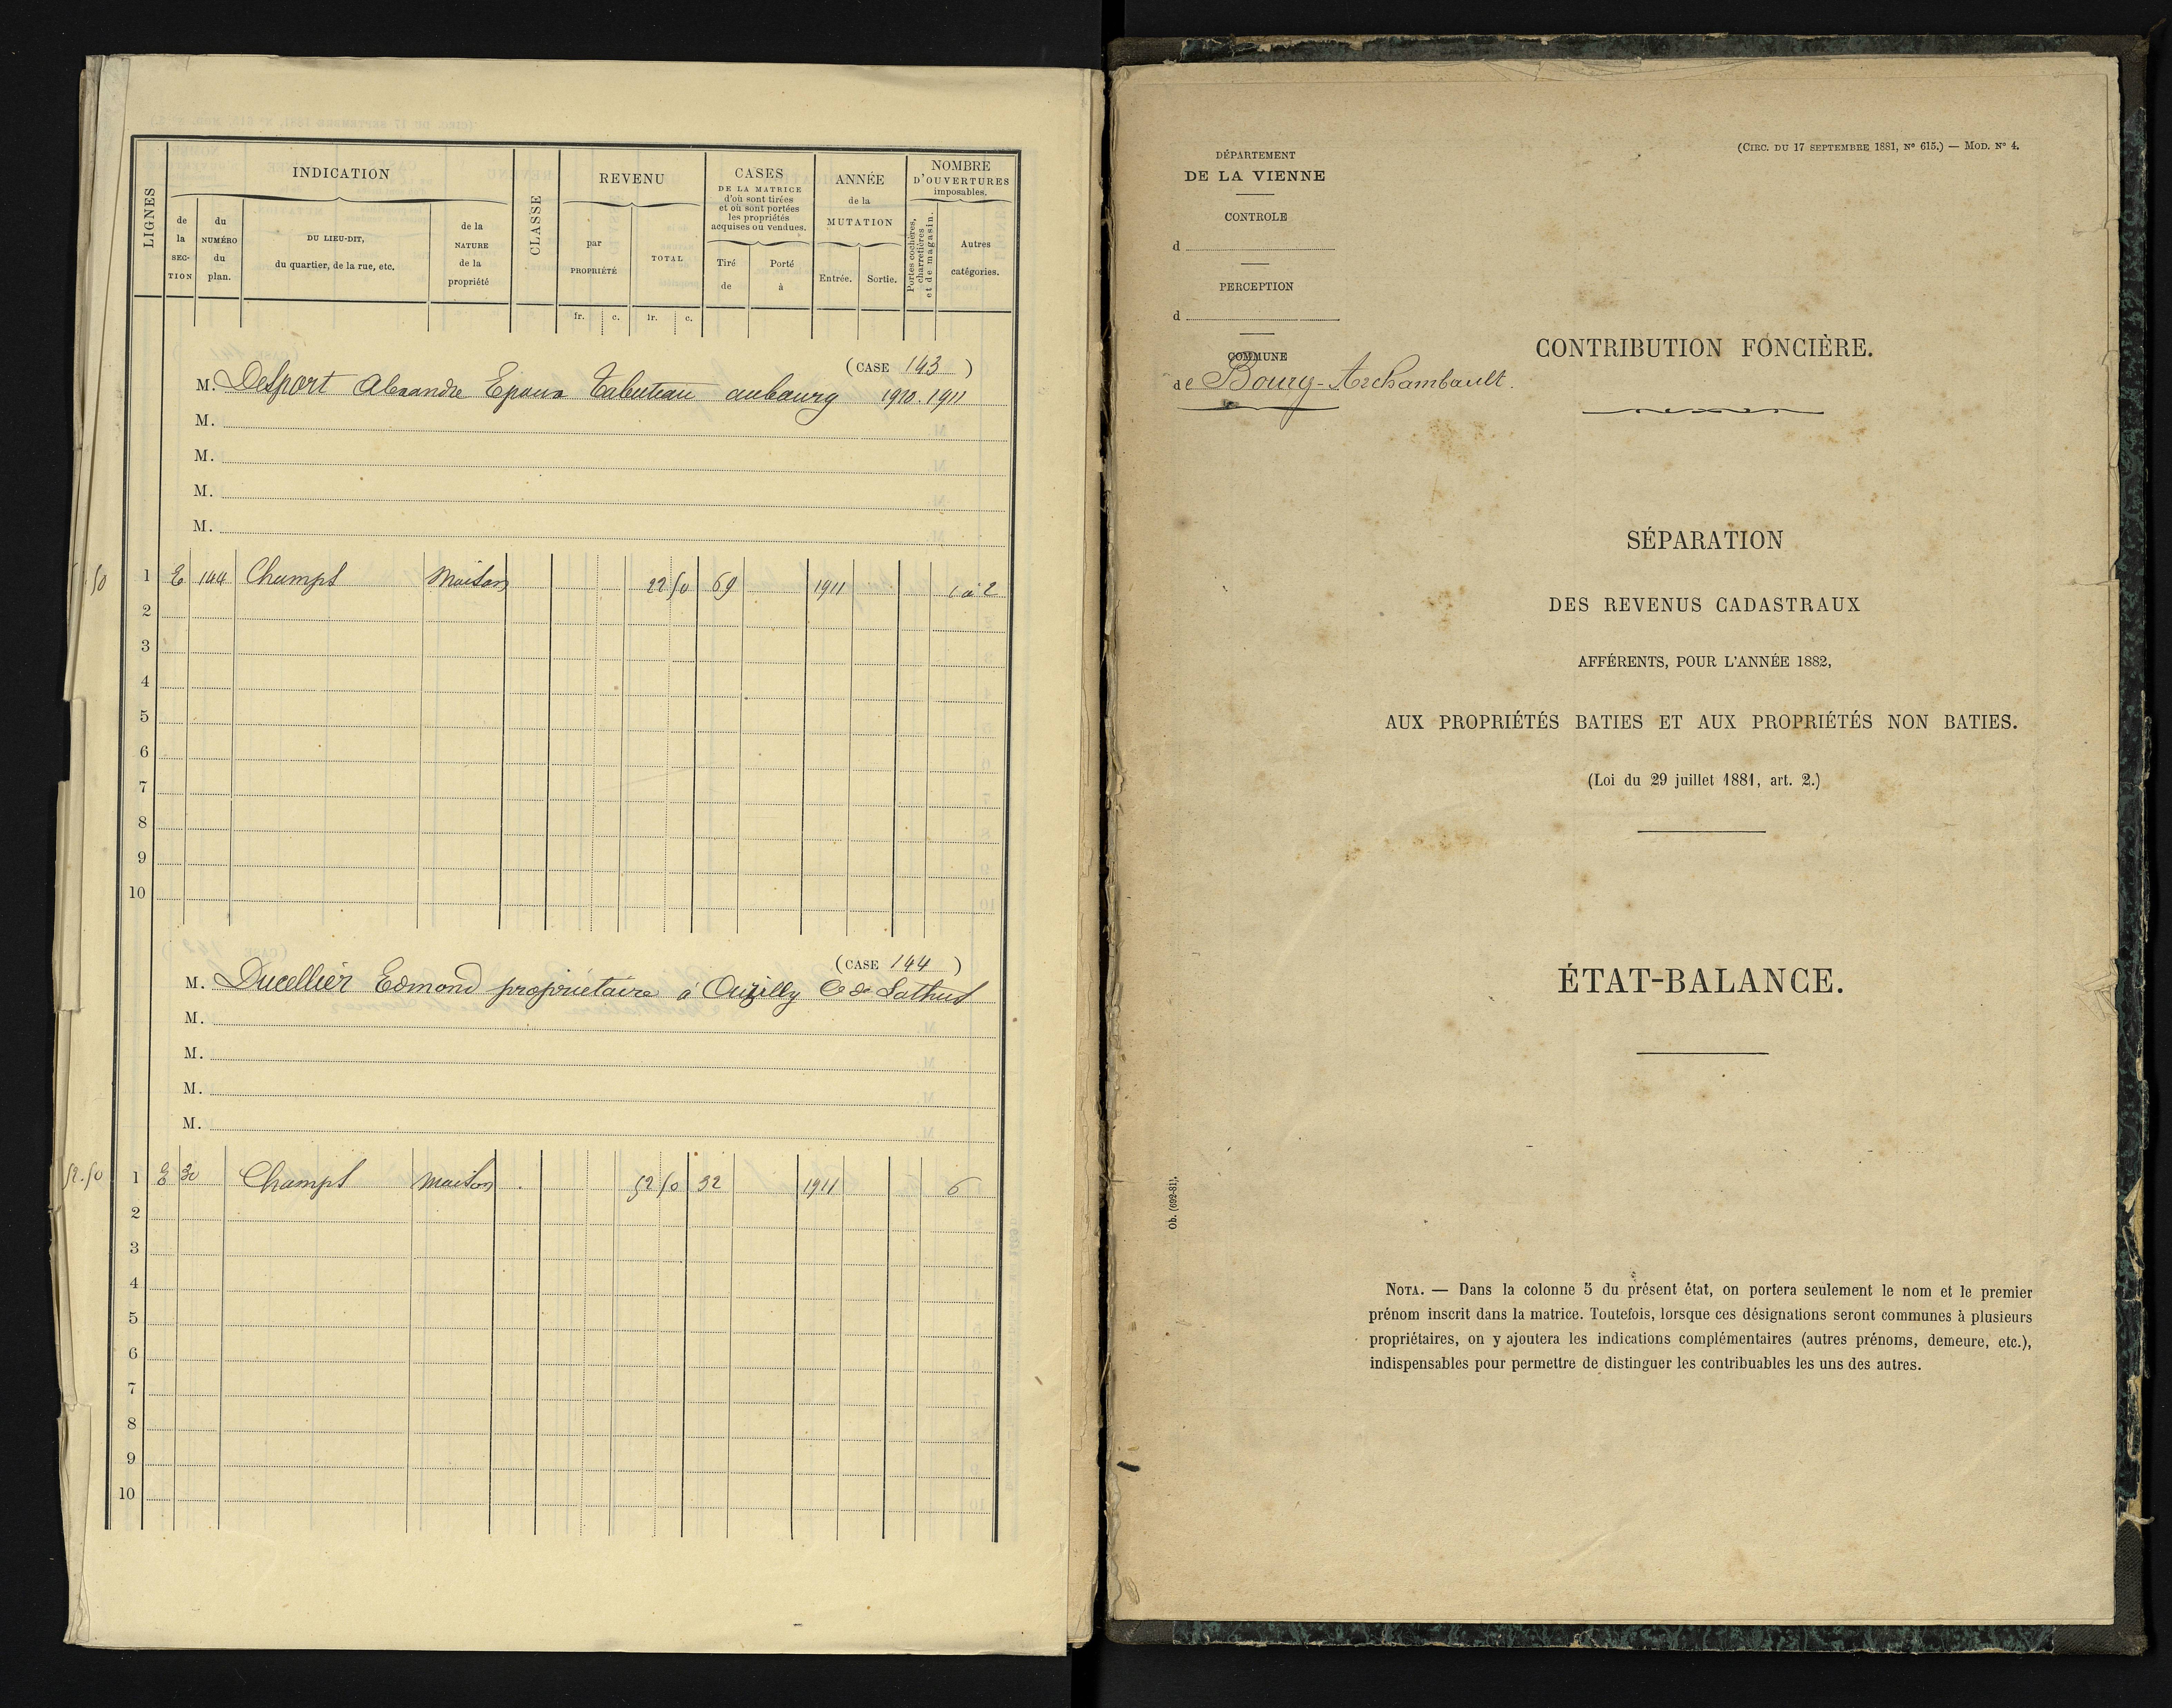 LIGNES
INDICATION
de la SECTION
du NUMÉRO du plan.
DU LIEU-DIT, du quartier, de la rue, etc.
de la NATURE de la propriété
CLASSE
REVENU
par PROPRIÉTÉ
TOTAL
CASES
DE LA MATRICE
d'où sont tirées
et où sont portées
les propriétés
acquises ou vendues.
Tiré de
Porté à
ANNÉE
de la
MUTATION
Entrée.
Sortie.
NOMBRE
D'OUVERTURES
imposables.
Portes cochères, charretières et de magasin.
Autres catégories.
fr. c. fr. c.
(CASE 143)
M. Desport Alexandre Epoux Tabuteau au bourg 1910.1911
M.
M.
M.
M.
50 1 E 144 Champs Maison 22 50 69 1911 1 à 2
2
3
4
5
6
7
8
9
10
(CASE 144)
M. Ducellier Edmond propriétaire à Auzilly Cne de Lathus
M.
M.
M.
M.
52.50 1 E 30 Champs Maison 52 50 32 1911 6
2
3
4
5
6
7
8
9
10
DÉPARTEMENT
DE LA VIENNE
CONTROLE
d
PERCEPTION
d
COMMUNE
de Bourg-Archambault.
(CIRC. DU 17 SEPTEMBRE 1881, N° 615.) — MOD. N° 4.
CONTRIBUTION FONCIÈRE.
SÉPARATION
DES REVENUS CADASTRAUX
AFFÉRENTS, POUR L'ANNÉE 1882,
AUX PROPRIÉTÉS BATIES ET AUX PROPRIÉTÉS NON BATIES.
(Loi du 29 juillet 1881, art. 2.)
ÉTAT-BALANCE.
Ob. (692-81).
NOTA. — Dans la colonne 5 du présent état, on portera seulement le nom et le premier
prénom inscrit dans la matrice. Toutefois, lorsque ces désignations seront communes à plusieurs
propriétaires, on y ajoutera les indications complémentaires (autres prénoms, demeure, etc.),
indispensables pour permettre de distinguer les contribuables les uns des autres.